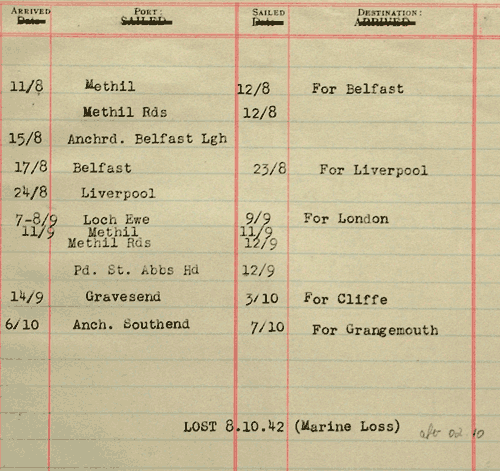 ARRIVED PORT: SAILED DESTINATION:
Date SAILED Date ARRIVED
11/8 Methil 12/8 For Belfast
Methil Rds 12/8
15/8 Anchrd. Belfast Lgh
17/8 Belfast 23/8 For Liverpool
24/8 Liverpool
7-8/9 Loch Ewe 9/9 For London
11/9 Methil 11/9
Methil Rds 12/9
Pd. St. Abbs Hd 12/9
14/9 Gravesend 3/10 For Cliffe
6/10 Anch. Southend 7/10 For Grangemouth
LOST 8.10.42 (Marine Loss)